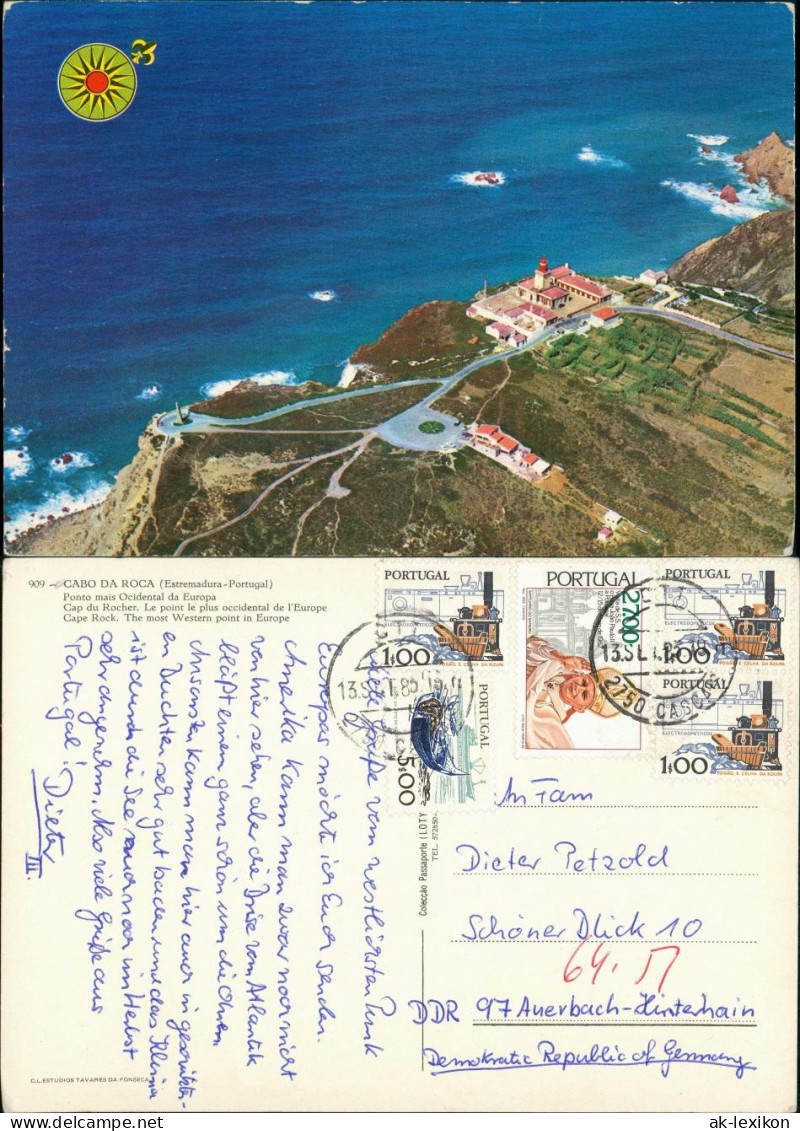 909 - CABO DA ROCA (Estremadura-Portugal)
Ponto mais Ocidental da Europa
Cap du Rocher. Le point le plus occidental de l'Europe
Cape Rock. The most Western point in Europe
PORTUGAL
1$00
FOGÃO, E CELHA DA ROUPA
PORTUGAL
5$00
PORTUGAL
27$00
PORTUGAL
ELECTRODOMÉSTICOS
1$00
ELECTRODOMÉSTICOS
1$00
FOGÃO, E CELHA DA ROUPA
13.SET.85
2750 CASCAIS
Liebe Grüße vom westlichsten Punkt
Europas möchte ich Euch senden.
Amerika kann man zwar noch nicht
von hier sehen, aber die Brise vom Atlantik
bläst einem ganz schön um die Ohren.
Ansonsten kann man hier auch in geschützter-
en Buchten sehr gut baden und das Klima
ist durch die See auch noch im Herbst
sehr angenehm. Also viele Grüße aus
Portugal! Dieter
III.
Colecção Passaporte (LOTY
TEL. 572850-
An Fam
Dieter Petzold
Schöner Blick 10
64.
DDR 97 Auerbach-Hinterhain
Demokratic Republic of Germany
C.L.ESTUDIOS TAVARES DA FONSECA
ak-lexikon.com